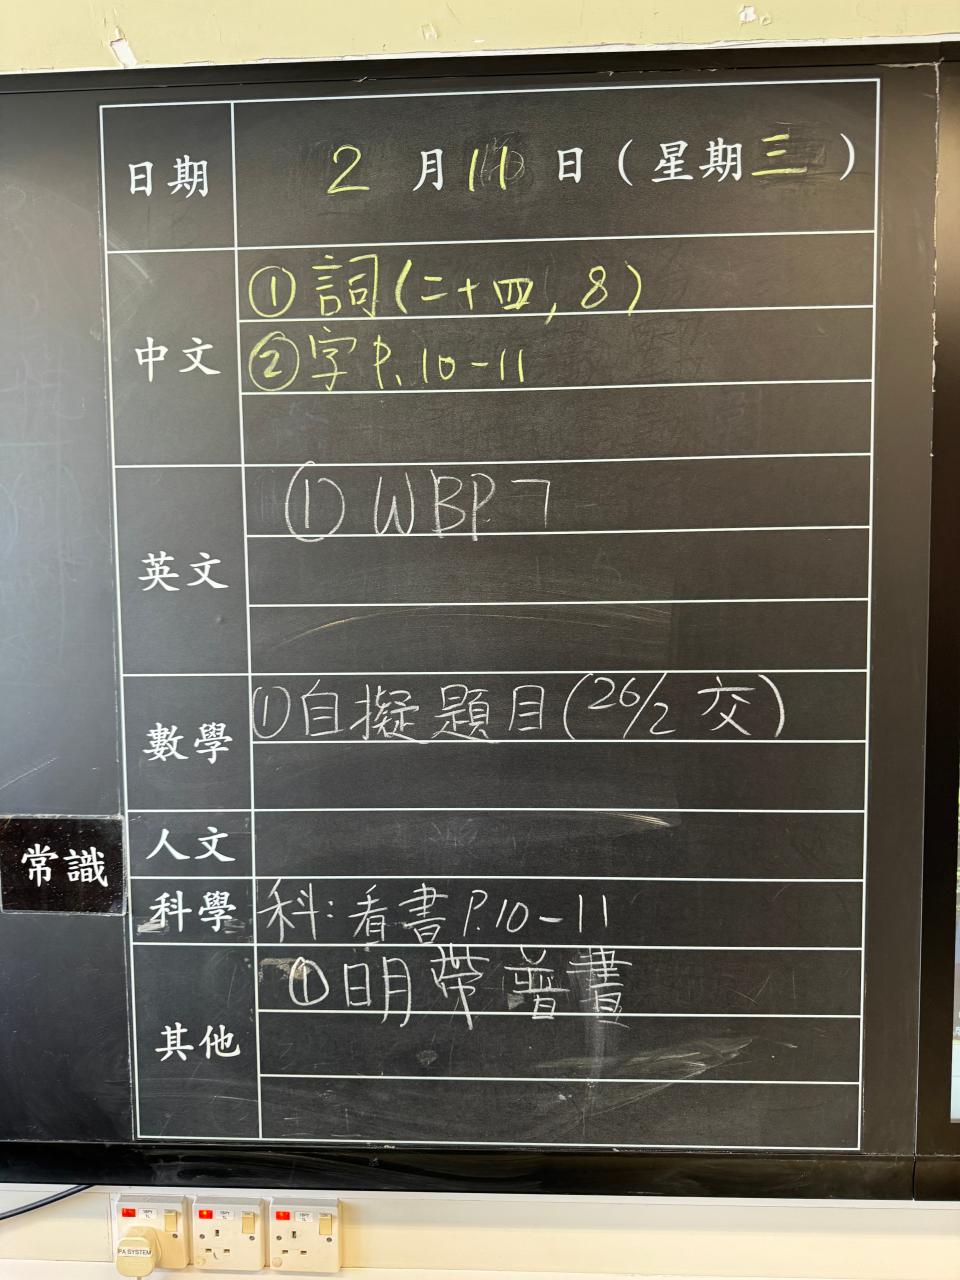 日期 2月11日(星期三)
中文 ①詞(二十四,8)
②字P.10-11
英文 ①WBP.7
數學 ①自擬題目(26/2交)
人文
常識
科學 科:看書P.10-11
其他 ①明帶普書
PA SYSTEM